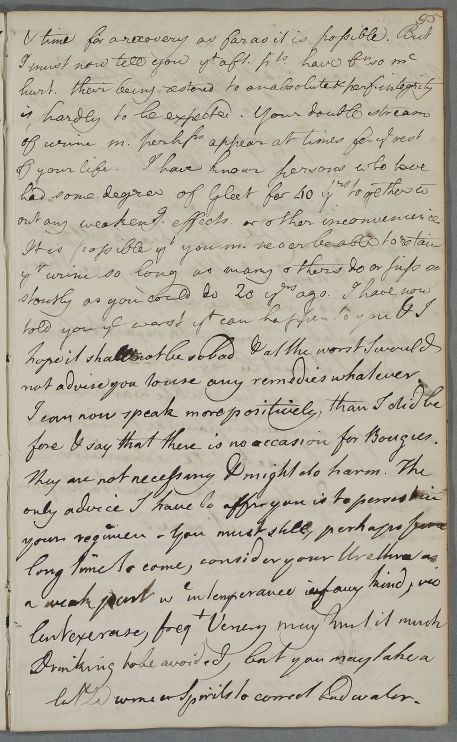 95
& time for a recovery as far as it is possible. But
I must now tell you yt aft. pts have bn so mc
hurt. their being restored to an absolute & perf. integrity
is hardly to be expected. Your double stream
of urine m. perhps appear at times for ye rest
of your life. I have known persons who have
had some degree of Gleet for 40 yrs together wt
out any weakeng. effects. or other inconvenience
It is possible yt you m. never be able to retain
yr urine so long as many others do or piss so
stoutly as you could do 20 yrs ago. I have now
told you ye worst yt can happen to you & I
hope it shall not be so bad & at the worst I would
not advise you to use any remedies whatever.
I can now speak more positively, than I did be
fore & say that there is no occasion for Bougies.
they are not necessary & might do harm. The
only advice I have to offer you is to persevere in
your regimen - You must still, perhaps for a
long time to come, consider your Urethra as
a weak part wc intemperance of any kind, vio
lent exercise, freqt Venery may hurt it much
Drinking to be avoided, but you may take a
little wine or Spirits to correct bad water.